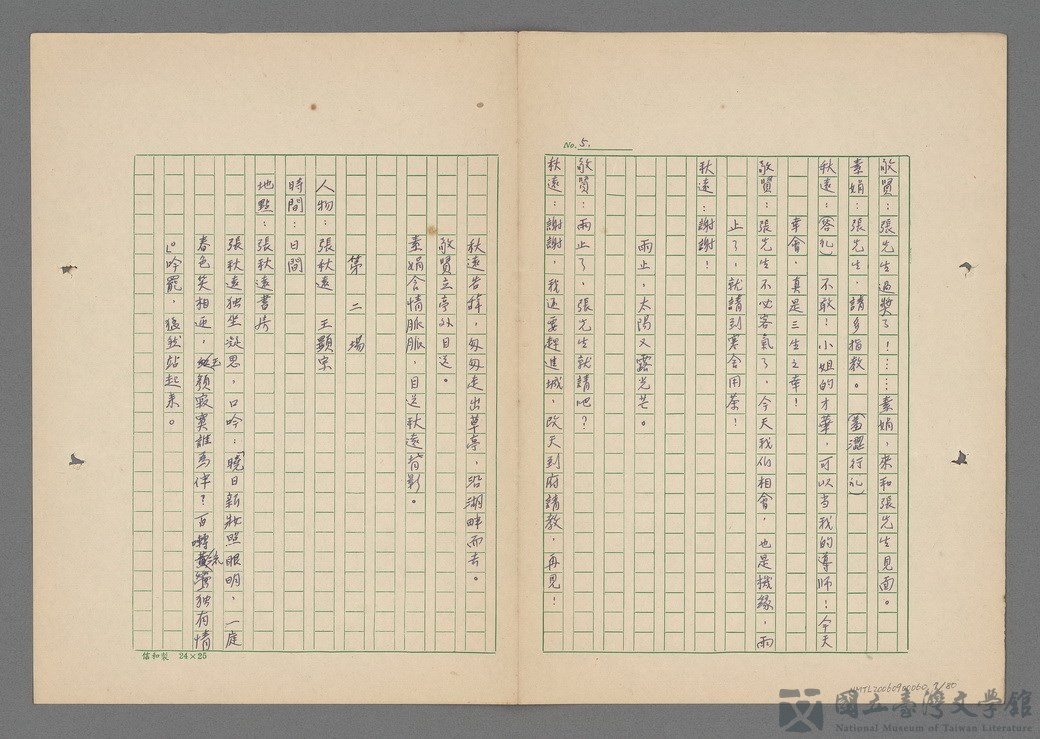 No. 5.
敬賢：張先生過獎了！……素娟，來和張先生見面。
素娟：張先生，請多指教。（羞澀行礼）
秋遠：（答礼）不敢！小姐的才華，可以当我的導师！今天
幸會，真是三生之幸！
敬賢：張先生不必客氣了，今天我们相會，也是機緣，雨
止了，就請到寒舍用茶！
秋遠：謝謝！
雨止，太陽又露光芒。
敬賢：雨止了，張先生就請吧？
秋遠：謝謝，我还要趕進城，改天到府請教，再見！
秋遠告辞，匆匆走出草亭，沿湖畔而去。
敬賢立亭外目送。
素娟含情脈脈，目送秋遠背影。
第二場
人物：張秋遠 王顯宗
時間：日間
地點：張秋遠書房
張秋遠独坐凝思，口吟：「曉日新妝照眼明，一庭
春色笑相迎，玉顏寂寞誰為伴？百囀流鶯独有情
」。吟罷，猛然站起来。
信和製 24×25
NMTL20060900060 7/80
國立臺灣文學館
National Museum of Taiwan Literature